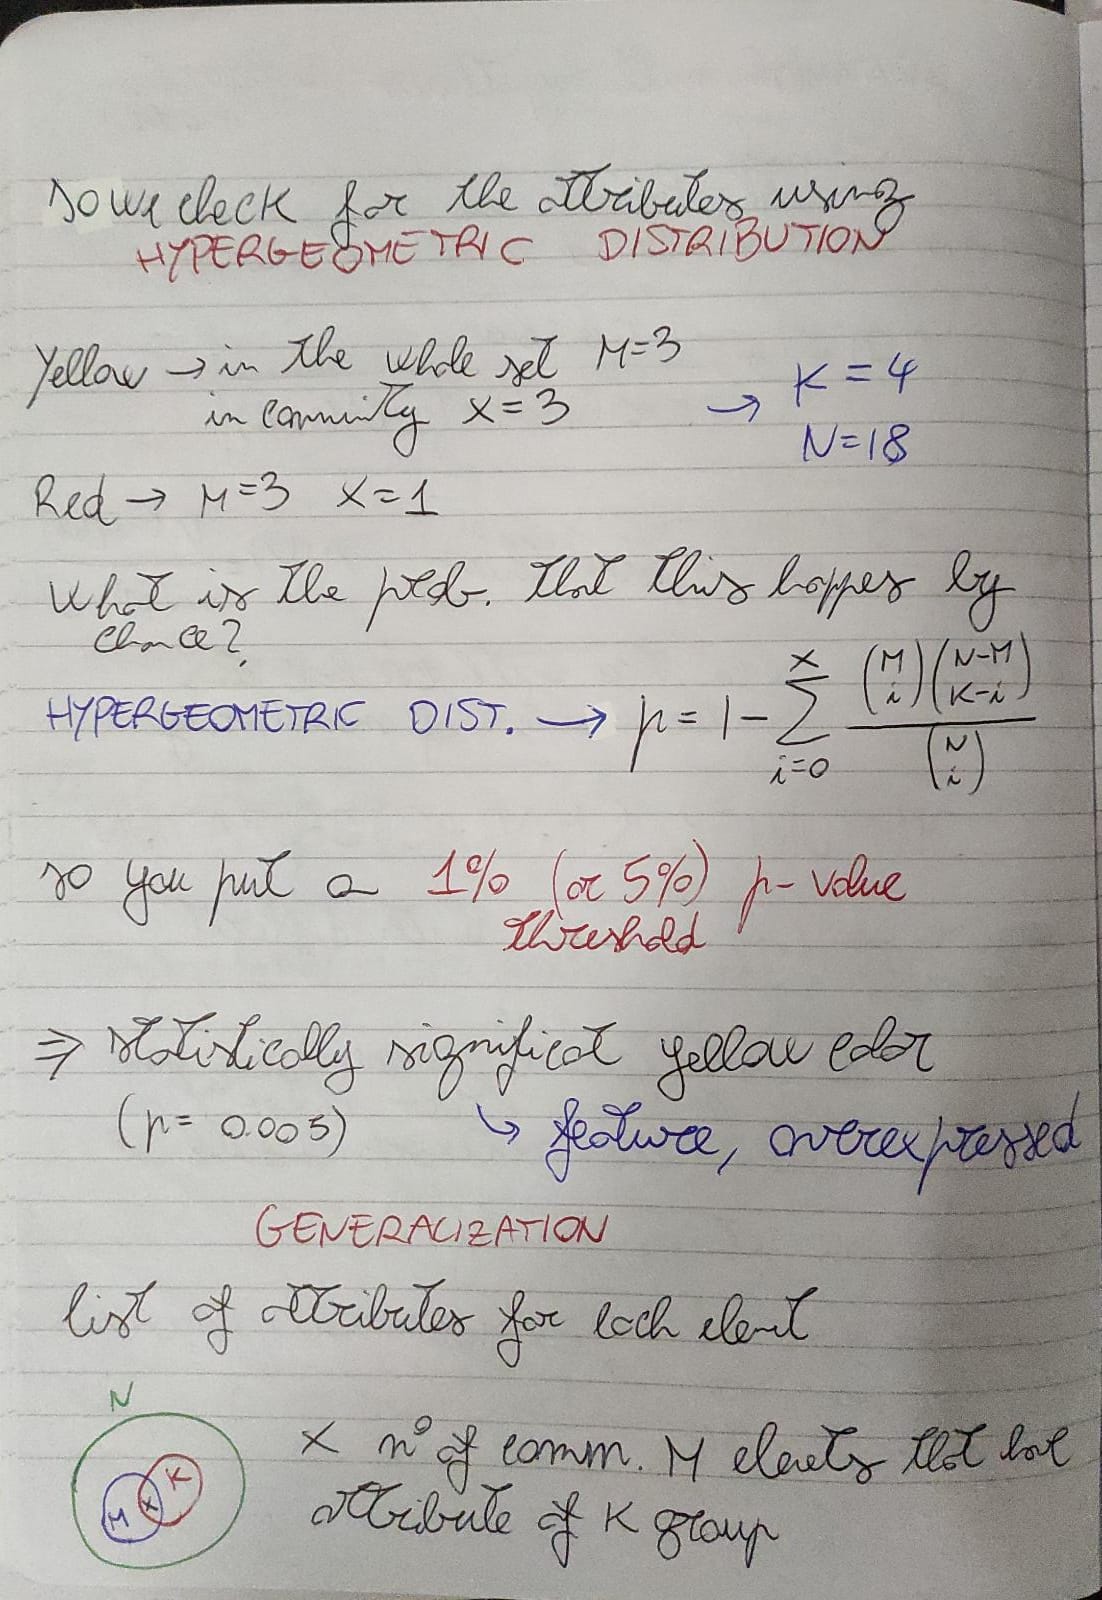 so we check for the attributes using
HYPERGEOMETRIC DISTRIBUTION
Yellow → in the whole set M=3
in community X=3
→ K=4
N=18
Red → M=3 X=1
What is the prob. that this happes by
chance?
HYPERGEOMETRIC DIST. → p = 1 - \sum_{i=0}^{X} \frac{\binom{M}{i}\binom{N-M}{K-i}}{\binom{N}{i}}
so you put a 1% (or 5%) p-value
threshold
⇒ statistically significat yellow color
(p= 0.005) ↳ feature, overexpressed
GENERALIZATION
list of attributes for each elemt
N
M X K
X n° of comm. M elemets that have
attribute of K group